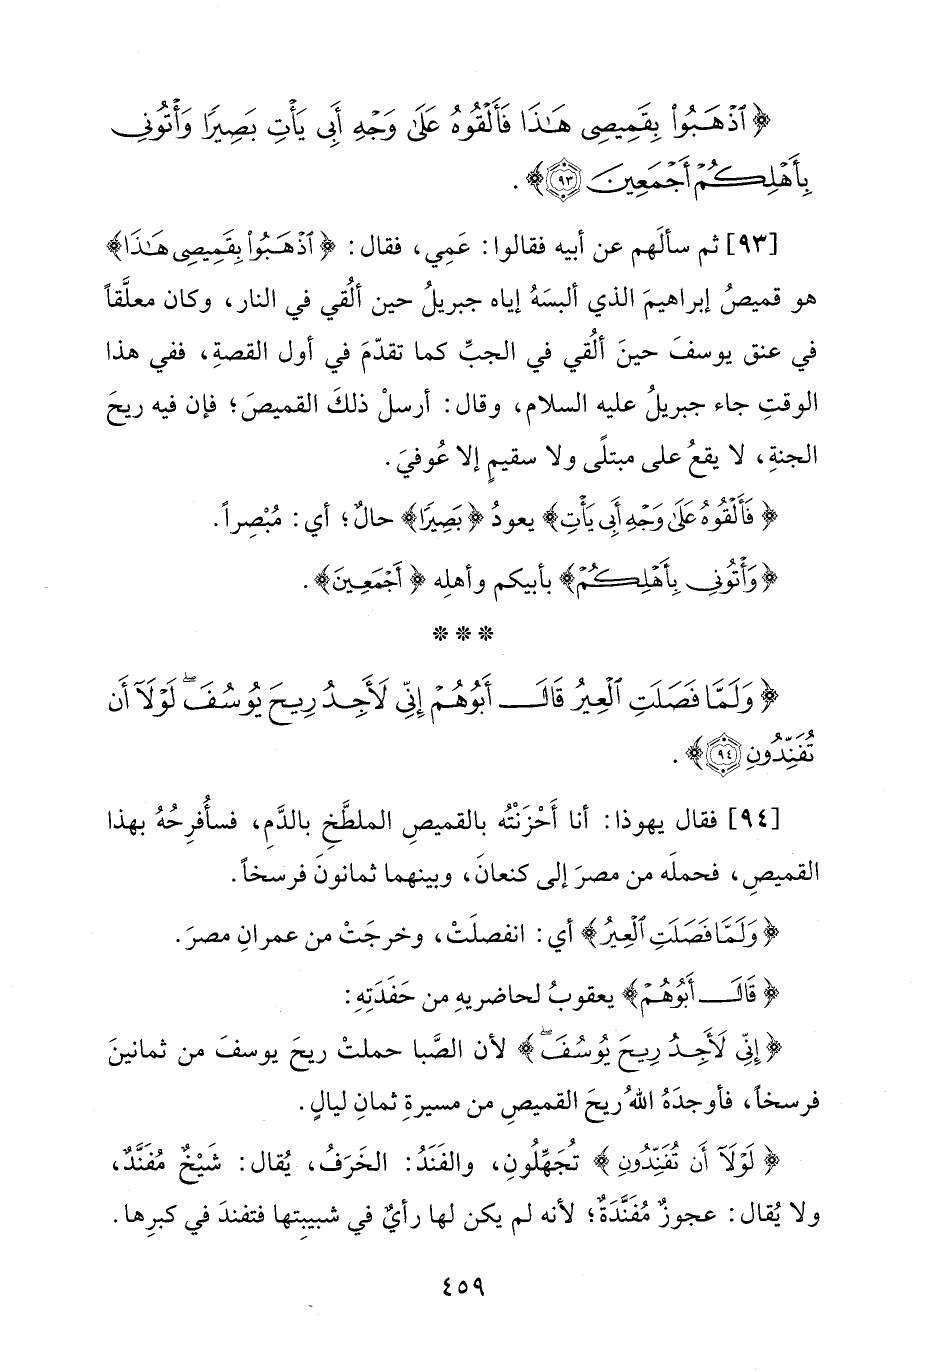 ﴿ٱذْهَبُوا۟ بِقَمِيصِى هَـٰذَا فَأَلْقُوهُ عَلَىٰ وَجْهِ أَبِى يَأْتِ بَصِيرًا وَأْتُونِى
بِأَهْلِكُمْ أَجْمَعِينَ ٩٣﴾ .
[٩٣] ثم سألَهم عن أبيه فقالوا: عَمِي، فقال: ﴿ٱذْهَبُوا۟ بِقَمِيصِى هَـٰذَا﴾
هو قميصُ إبراهيمَ الذي ألبسَهُ إياه جبريلُ حين ألُقي في النار، وكان معلَّقاً
في عنق يوسفَ حينَ ألُقي في الجبِّ كما تقدّمَ في أول القصةِ، ففي هذا
الوقتِ جاء جبريلُ عليه السلام، وقال: أرسلْ ذلكَ القميصَ؛ فإن فيه ريحَ
الجنةِ، لا يقعُ على مبتلًى ولا سقيمٍ إلا عُوفيَ.
﴿فَأَلْقُوهُ عَلَىٰ وَجْهِ أَبِى يَأْتِ﴾ يعودُ ﴿بَصِيرًا﴾ حالٌ؛ أي: مُبْصِراً.
﴿وَأْتُونِى بِأَهْلِكُمْ﴾ بأبيكم وأهلِه ﴿أَجْمَعِينَ﴾ .
* * *
﴿وَلَمَّا فَصَلَتِ ٱلْعِيرُ قَالَ أَبُوهُمْ إِنِّى لَأَجِدُ رِيحَ يُوسُفَ ۖ لَوْلَآ أَن
تُفَنِّدُونِ ٩٤﴾ .
[٩٤] فقال يهوذا: أنا أَحْزَنْتُه بالقميصِ الملطَّخِ بالدَّمِ، فسأُفرِحُهُ بهذا
القميصِ، فحملَه من مصرَ إلى كنعانَ، وبينهما ثمانونَ فرسخاً.
﴿وَلَمَّا فَصَلَتِ ٱلْعِيرُ﴾ أي: انفصلَتْ، وخرجَتْ من عمرانِ مصرَ.
﴿قَالَ أَبُوهُمْ﴾ يعقوبُ لحاضريهِ من حَفَدَتِهِ:
﴿إِنِّى لَأَجِدُ رِيحَ يُوسُفَ ۖ﴾ لأن الصَّبا حملتْ ريحَ يوسفَ من ثمانينَ
فرسخاً، فأوجدَهُ اللهُ ريحَ القميصِ من مسيرةِ ثمانِ ليالٍ.
﴿لَوْلَآ أَن تُفَنِّدُونِ﴾ تُجَهِّلُونِ، والفَنَدُ: الخَرَفُ، يُقال: شَيْخٌ مُفَنَّدٌ،
ولا يُقال: عجوزٌ مُفَنَّدَةٌ؛ لأنه لم يكن لها رأيٌ في شبيبتِها فتفندَ في كبرِها.
٤٥٩